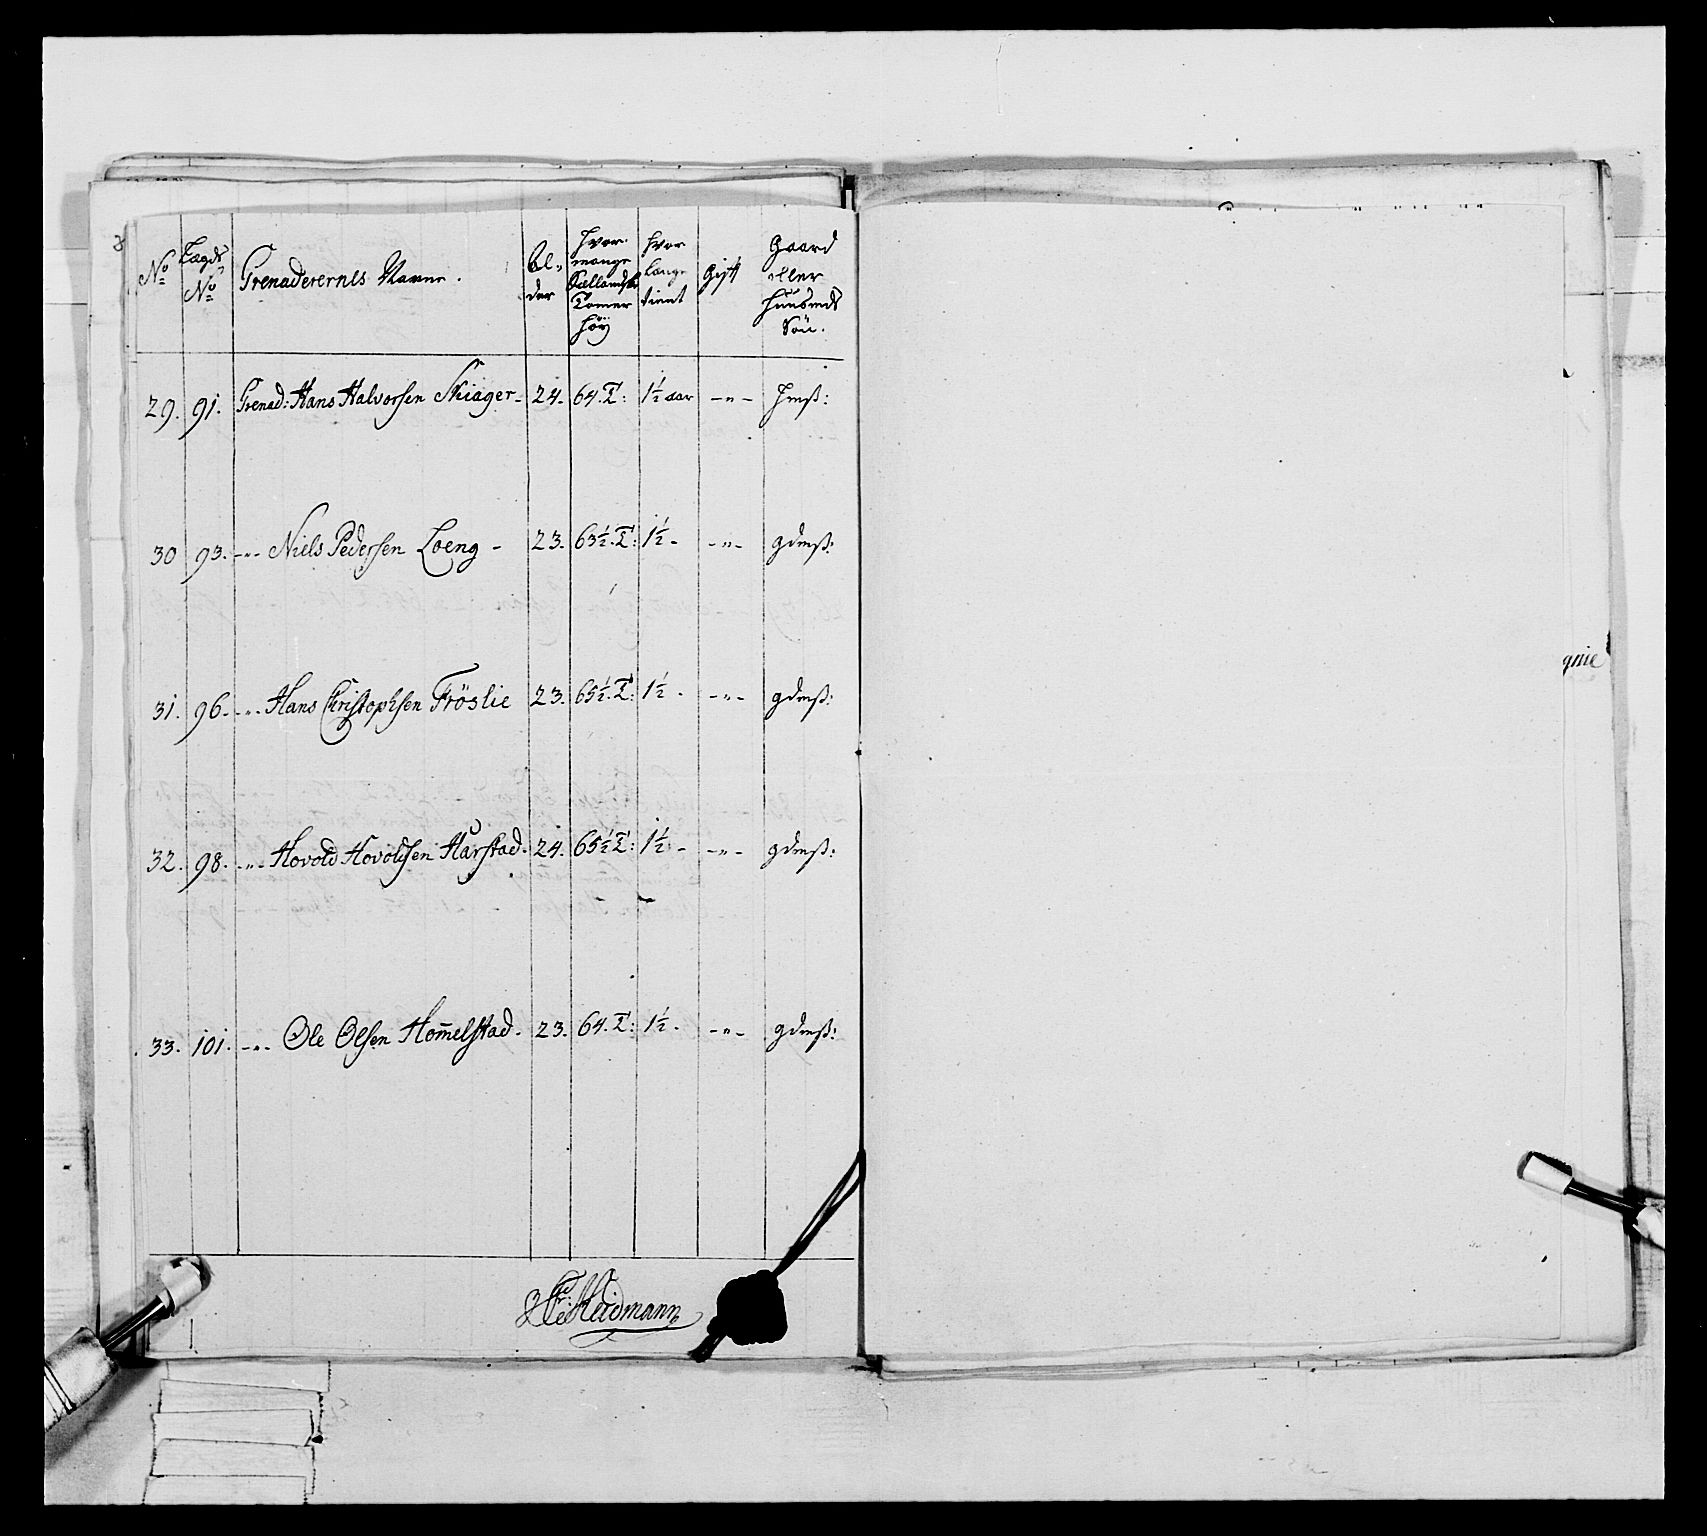 8
No Lægds No Grenaderernes Navne. Al-der hvor mange Siællandske Tomer høy hvor længe tient Gift Gaard eller Huusmds Søn.
29. 91. Grenad: Hans Halvorsen Skiager- 24. 64. T: 1½ aar -"- Hmß:
30 93. -"- Niels Pedersen Loeng - 23. 63½. T: 1½- -"- gdmß:
31. 96. -"- Hans Christophsen Fröslie 23. 65½. T: 1½. -"- gdmß:
32. 98. -"- Hovold Hovoldsen Harstad. 24. 65½ T: 1½- -"- gdmß:
33. 101. -"- Ole Olsen Hom̅elstad. 23. 64. T: 1½. -"- gdmß:
Heidmann
gnie